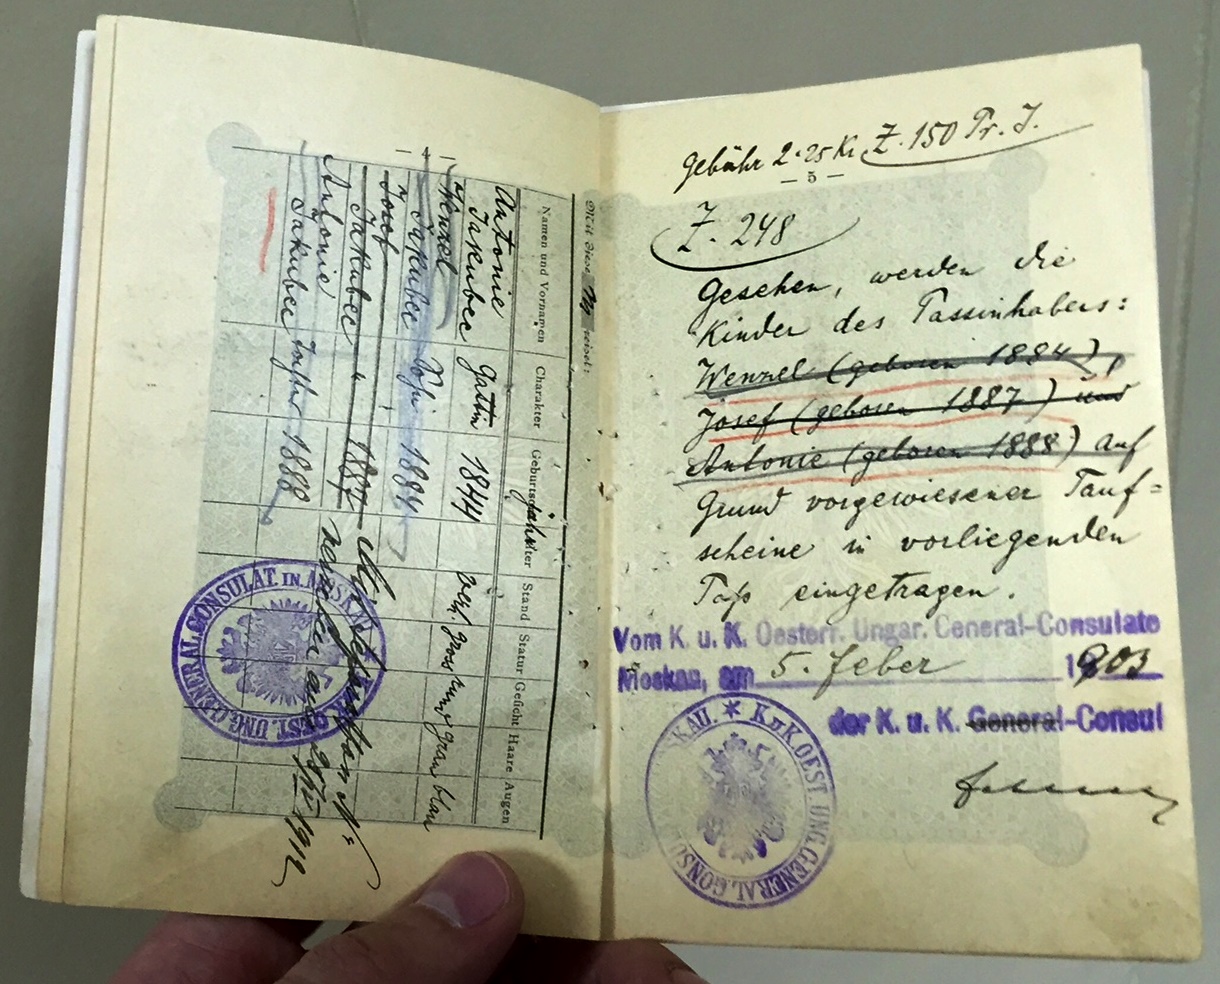 — 4 —
Mit diesem reiset:
Namen und Vornamen Charakter Geburtsjahr Alter Stand Statur Gesicht Haare Augen
Antonie
Jakubec Gattin 1844 verh. gross rund grau blau
Wenzel
Jakubec Sohn 1884
Josef
Jakubec " 1887
Antonie
Jakubec Tochter 1888
1912
K. u. K. OEST. UNG. GENERAL. CONSULAT. IN MOSKAU.
Gebühr 2·25 Kr Z. 150 Pr. J.
— 5 —
Z. 248
Gesehen, werden die
Kinder des Passinhabers:
Wenzel (geboren 1884),
Josef (geboren 1887) und
Antonie (geboren 1888) auf
Grund vorgewiesener Tauf=
scheine in vorliegenden
Paß eingetragen.
Vom K. u. K. Oesterr. Ungar. General-Consulate
Moskau, am 5. Feber 1903
der K. u. K. General-Consul
K. u. K. OEST. UNG. GENERAL. CONSU SKAU.